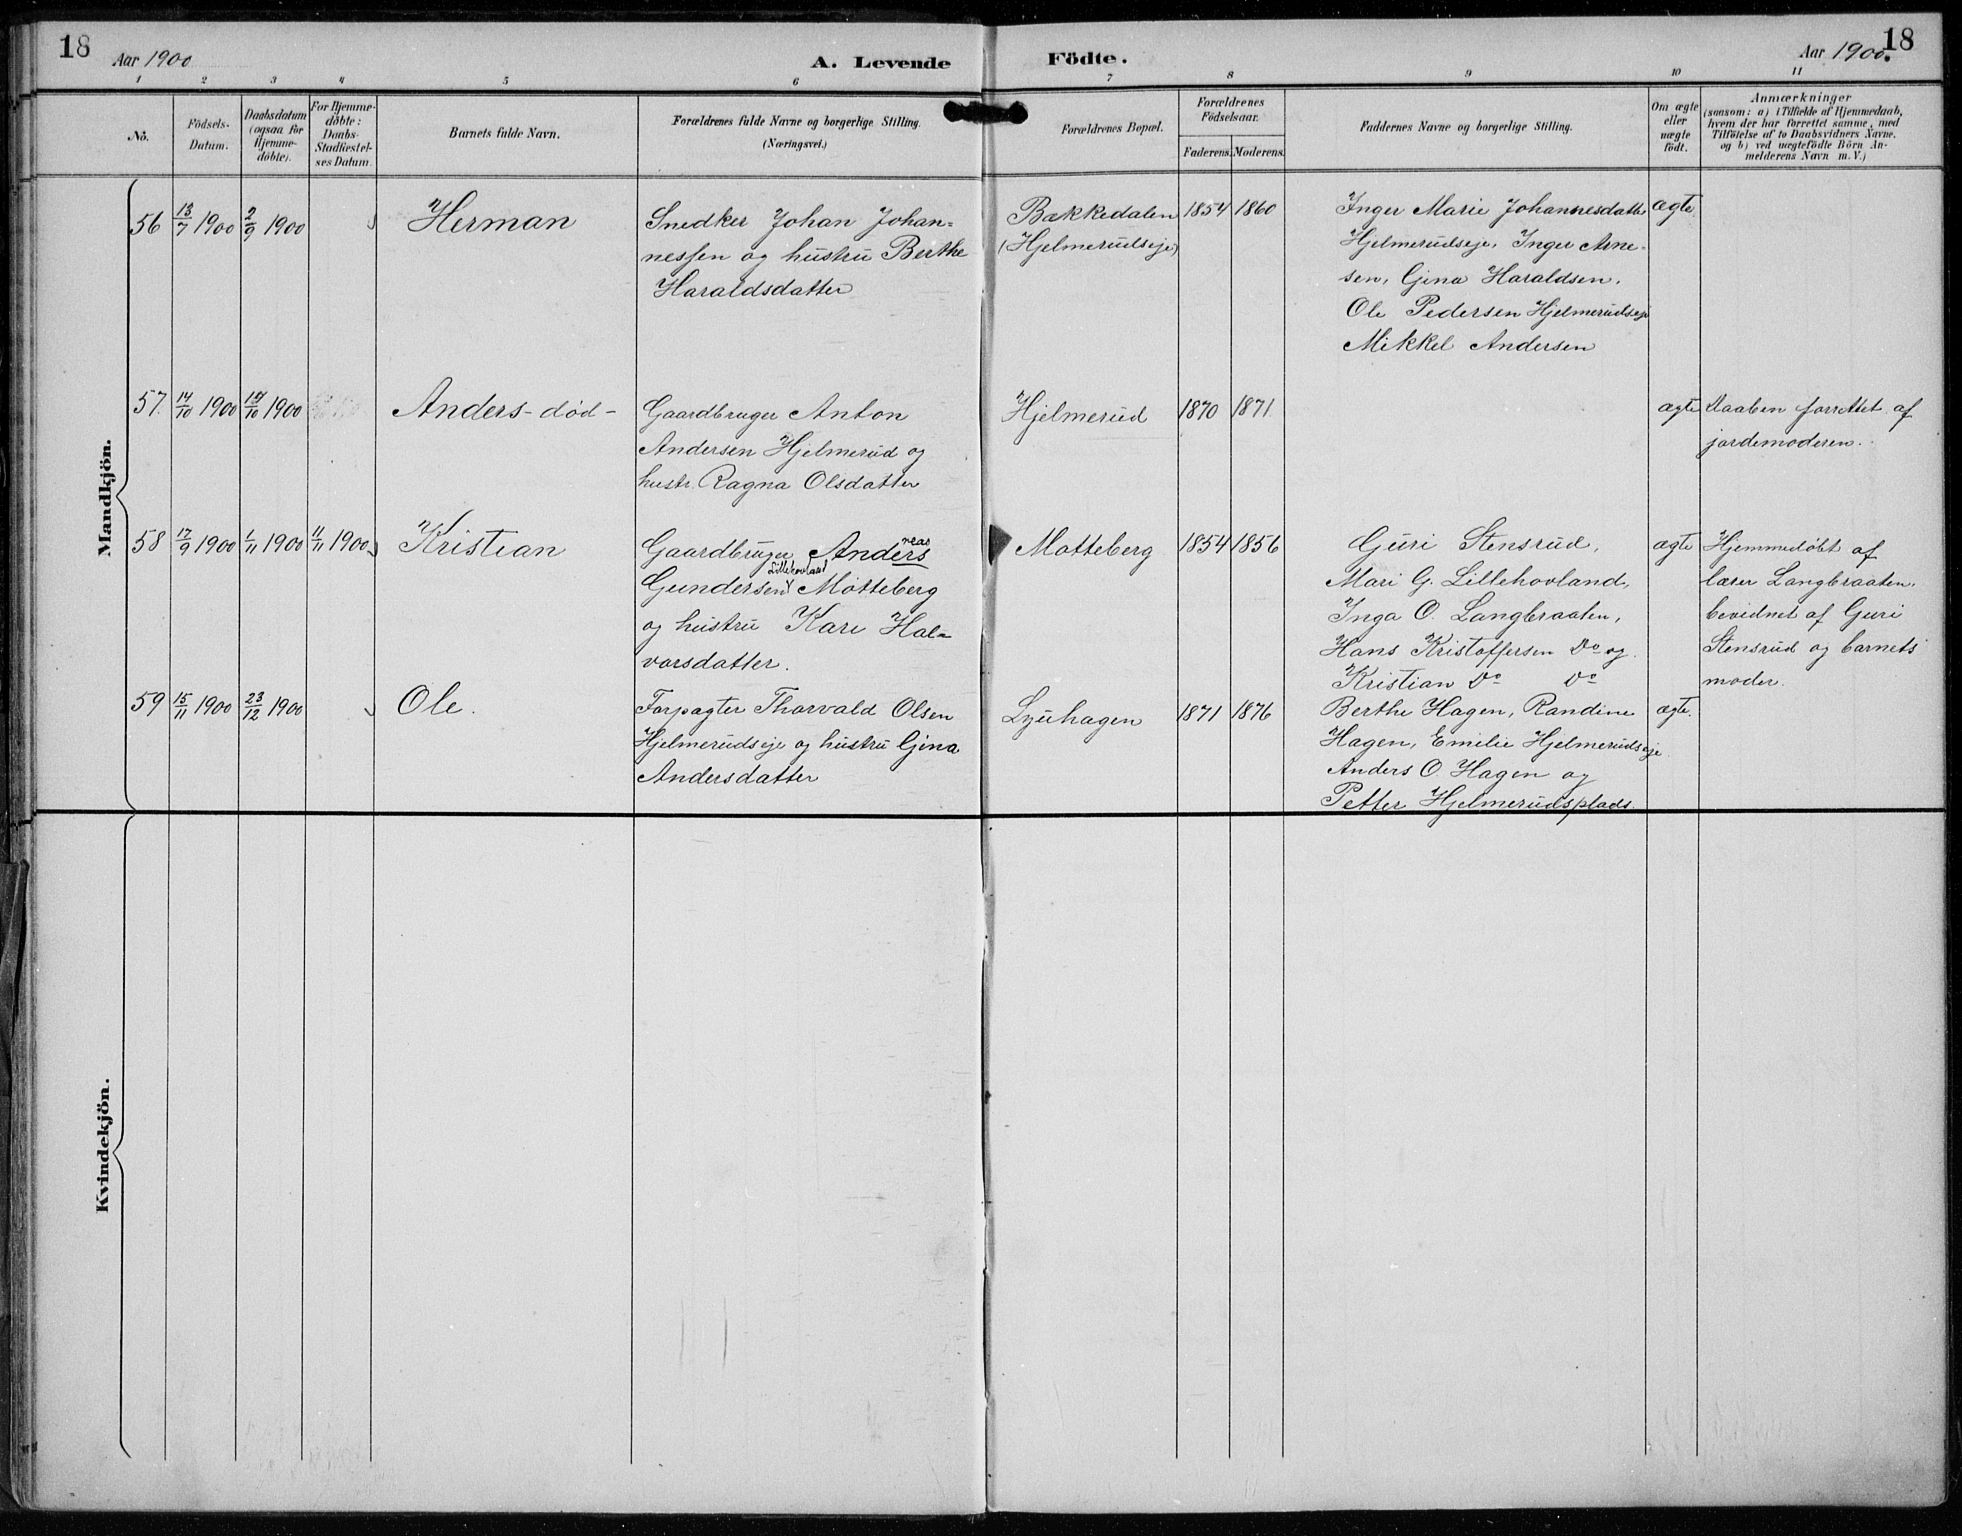 18
Aar 1900
A. Levende Födte.
Aar 1900.
18
1 2 3 4 5 6 7 8 9 10 11
No.
Födsels-
Datum.
Daabsdatum
(ogsaa for
Hjemme-
döbte).
For Hjemme-
döbte:
Daabs-
Stadfæstel-
ses Datum.
Barnets fulde Navn.
Forældrenes fulde Navne og borgerlige Stilling.
(Næringsvei.)
Forældrenes Bopæl.
Forældrenes
Födselsaar.
Faderens. Moderens.
Faddernes Navne og borgerlige Stilling.
Om ægte
eller
uægte
födt.
Anmærkninger
(saasom: a) i Tilfælde af Hjemmedaab,
hvem der har forrettet samme, med
Tilföielse af to Daabsvidners Navne.
og b) ved uægtefödte Börn An-
melderens Navn m. V.)
Mandkjön.
56 13/7 1900 2/9 1900
Herman
Snedker Johan Johan-
nessen og hustru Berthe
Haraldsdatter
Bækkedalen
(Hjelmerudseje)
1854 1860
Inger Marie Johannesdatter
Hjelmerudseje, Inger Arne-
sen, Gina Haraldsen,
Ole Pedersen Hjelmerudseje
Mikkel Andersen
ægte
57. 14/10 1900 14/10 1900
Anders - död -
Gaardbruger Anton
Andersen Hjelmerud og
hustr. Ragna Olsdatter
Hjelmerud
1870 1871
ægte
Daaben forrettet af
jordemoderen.
58 17/9 1900 1/11 1900 11/11 1900
Kristian
Gaardbruger Anders
reas
Lillehovland
Gundersen Motteberg
og hustru Kari Hal-
vorsdatter.
Motteberg
1854 1856
Guri Stensrud,
Mari G. Lillehovland,
Inga O. Langbraaten,
Hans Kristoffersen Do og
Kristian Do Do
ægte
Hjemmedöbt af
lærer Langbraaten.
bevidnet af Guri
Stensrud og barnets
moder.
59 15/11 1900 23/12 1900
Ole.
Forpagter Thorvald Olsen
Hjelmerudseje og hustru Gina
Andersdatter
Lyuhagen
1871 1876
Berthe Hagen, Randine
Hagen, Emilie Hjelmerudseje
Anders O. Hagen og
Petter Hjelmerudsplads.
ægte.
Kvindekjön.